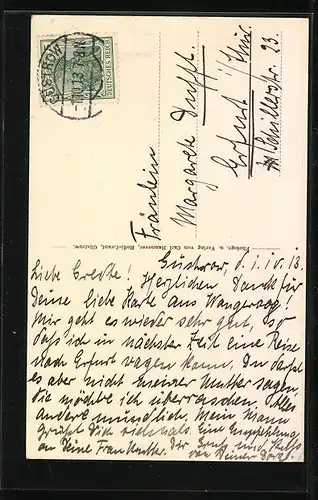 GÜSTROW
DEUTSCHES REICH
Fräulein
Margarete
Erfurt i/Thür.
Schillerstr. 23.
Photogr. u. Verlag von Carl Hannover, Hoflieferant, Güstrow.
Güstrow, d. 1. IV. 13.
Liebe Grete! Herzlichen Dank für
Deine liebe Karte aus
Mir geht es wieder sehr gut, so
daß ich in nächster Zeit eine Reise
nach Erfurt wagen kann. Du darfst
es aber nicht meiner Mutter sagen,
die möchte ich überraschen. Alles
andere mündlich. Mein Mann
grüßt Dich vielmals. Eine Empfehlung
an Deine Frau Mutter. Dir Gruß und Kuß
von Deiner